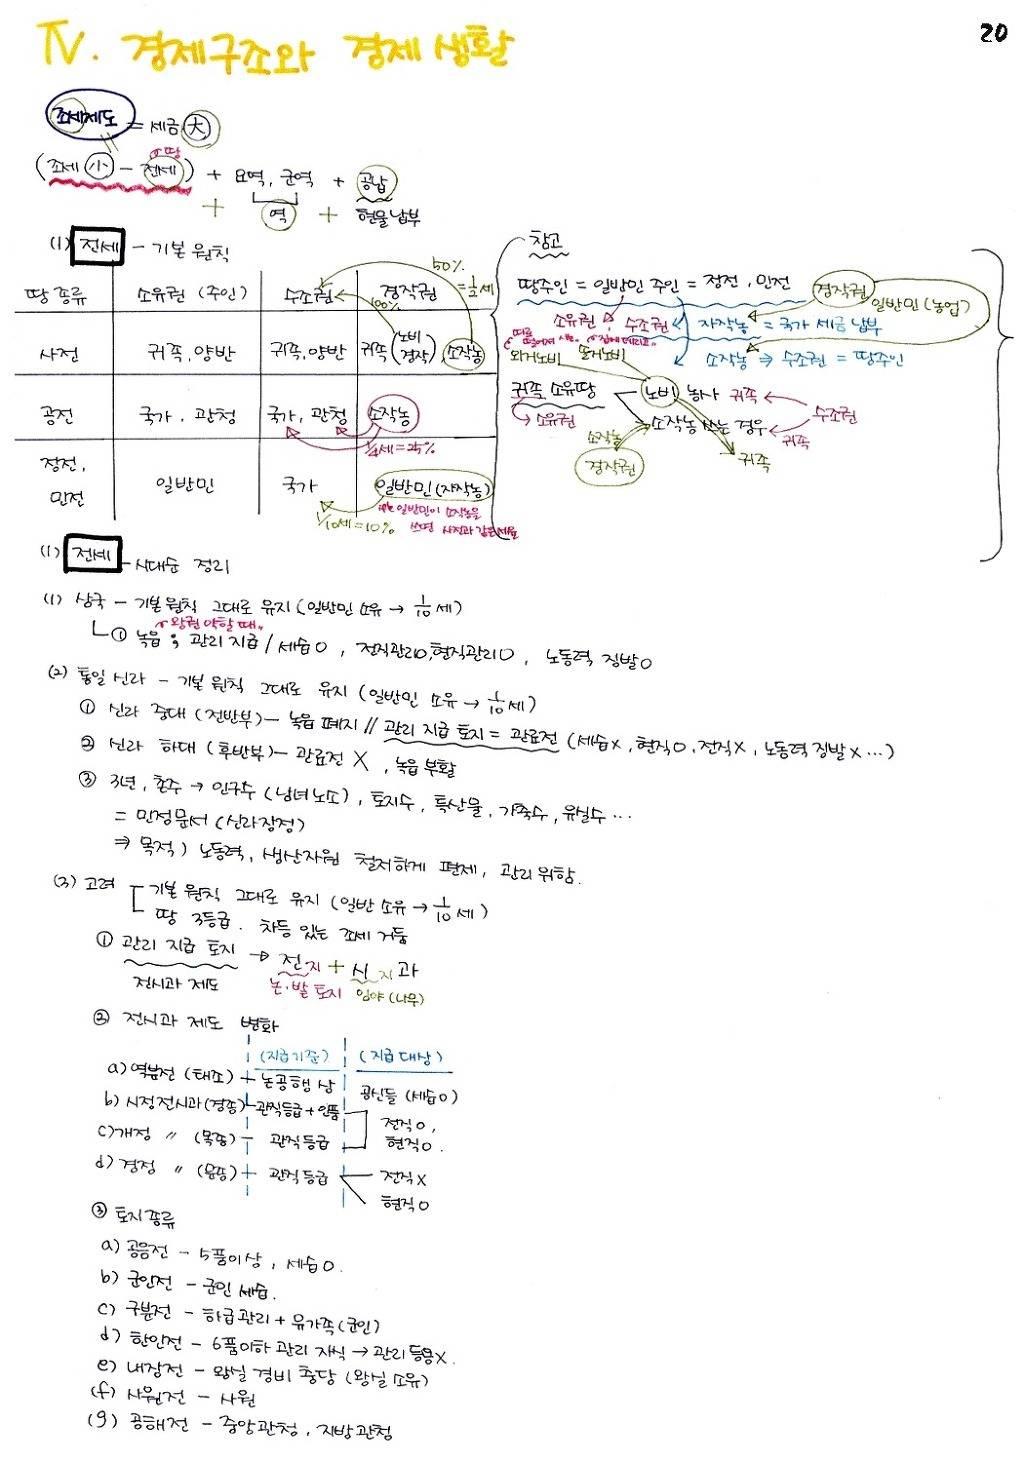 20
IV. 경제구조와 경제 생활
조세제도 = 세금 大
땅
(조세 小 - 전세) + 요역, 군역 + 공납
+ 역 + 현물 납부
(1) 전세 - 기본 원칙
땅 종류 소유권 (주인) 수조권 경작권
50% = 1/2세
100%
사전 귀족, 양반 귀족, 양반 귀족 (노비 경작), 소작농
공전 국가, 관청 국가, 관청 소작농
1/4세 = 25%
정전, 민전 일반민 국가 일반민 (자작농)
1/10세 = 10%
일반민이 소작농을
쓰면 사전과 같은 세율
참고
땅주인 = 일반민 주인 = 정전, 민전
경작권
일반민 (농업)
소유권, 수조권 자작농 = 국가 세금 납부
따로 떨어져 사는
외거노비 솔거노비
소작농 ⇒ 수조권 = 땅주인
귀족 소유땅 노비 농사 귀족
수조권
소유권 소작농 쓰는 경우 귀족
소작농
경작권 귀족
(1) 전세 - 시대순 정리
(1) 삼국 - 기본 원칙 그대로 유지 (일반민 소유 → 1/10세)
왕권 약할 때
① 녹읍 ; 관리 지급 / 세습O, 전직관리O, 현직관리O, 노동력 징발O
(2) 통일 신라 - 기본 원칙 그대로 유지 (일반민 소유 → 1/10세)
① 신라 중대 (전반부) - 녹읍 폐지 // 관리 지급 토지 = 관료전 (세습X, 현직O, 전직X, 노동력 징발X …)
② 신라 하대 (후반부) - 관료전 X, 녹읍 부활
③ 3년, 촌주 → 인구수 (남녀노소), 토지수, 특산물, 가축수, 유실수 …
= 민정문서 (신라장정)
⇒ 목적) 노동력, 생산자원 철저하게 편제, 관리 위함.
(3) 고려 기본 원칙 그대로 유지 (일반 소유 → 1/10세)
땅 3등급. 차등 있는 조세 거둠
① 관리 지급 토지 → 전지 + 시지과
전시과 제도 논·밭 토지 임야 (나무)
② 전시과 제도 변화
(지급기준) (지급 대상)
a) 역분전 (태조) 논공행상 공신들 (세습O)
b) 시정전시과 (경종) 관직등급 + 인품
전직O,
c) 개정 〃 (목종) - 관직등급 현직O.
d) 경정 〃 (문종) 관직등급 전직X
현직O
③ 토지 종류
a) 공음전 - 5품이상, 세습O.
b) 군인전 - 군인 세습.
c) 구분전 - 하급관리 + 유가족 (군인)
d) 한인전 - 6품이하 관리 자식 → 관리 등용X.
e) 내장전 - 왕실 경비 충당 (왕실 소유)
(f) 사원전 - 사원
(g) 공해전 - 중앙관청, 지방관청